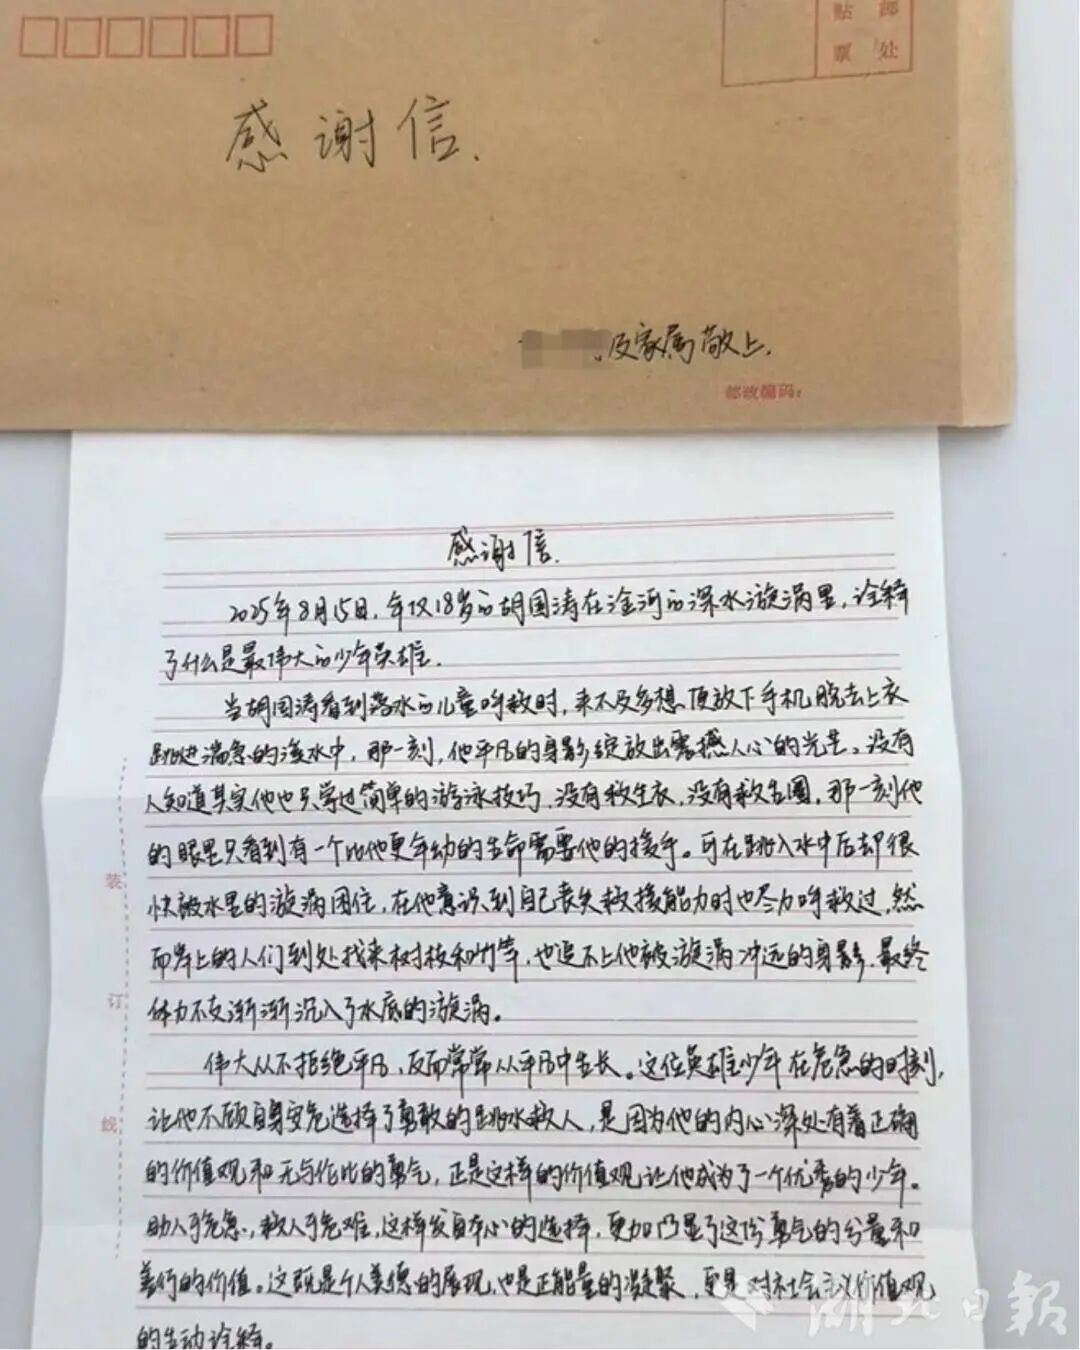 贴 邮
票 处
感谢信.
及家属敬上.
邮政编码：
感谢信.
2025年8月15日，年仅18岁的胡国涛在淦河的深水漩涡里，诠释
了什么是最伟大的少年英雄.
当胡国涛看到落水的儿童呼救时，来不及多想便放下手机脱去上衣
跳进湍急的淦水中，那一刻，他平凡的身影绽放出震撼人心的光芒。没有
人知道其实他也只学过简单的游泳技巧，没有救生衣，没有救生圈，那一刻他
的眼里只看到有一个比他更年幼的生命需要他的援手。可在跳入水中后却很
快被水里的漩涡困住，在他意识到自己丧失救援能力时也尽力呼救过，然
而岸上的人们到处找来树枝和竹竿，也追不上他被漩涡冲远的身影，最终
体力不支渐渐沉入了水底的漩涡。
伟大从不拒绝平凡，反而常常从平凡中生长。这位英雄少年在危急的时刻，
让他不顾自身安危选择了勇敢的跳水救人，是因为他的内心深处有着正确
的价值观和无与伦比的勇气，正是这样的价值观让他成为了一个优秀的少年。
助人于危急，救人于危难，这样发自本心的选择，更加凸显了这份勇气的分量和
善行的价值。这既是个人美德的展现，也是正能量的凝聚，更是对社会主义价值观
的生动诠释。
装
订
线
湖北日报